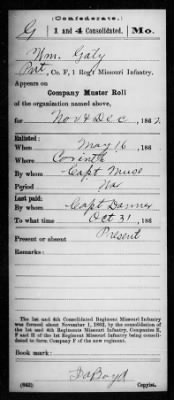 (Confederate.)
G 1 and 4 Consolidated. Mo.
Wm. Gaty
Pvt, Co. F, 1 Reg't Missouri Infantry.
Appears on
Company Muster Roll
of the organization named above,
for Nov & Dec, 1862.
Enlisted:
When May 16, 186
Where Corinth
By whom Capt Muse
Period War
Last paid:
By whom Capt Danner
To what time Oct 31, 186
Present or absent Present
Remarks:
The 1st and 4th Consolidated Regiment Missouri Infantry
was formed about November 1, 1862, by the consolidation of
the 1st and 4th Regiments Missouri Infantry, Companies E,
F and H of the 1st Regiment Missouri Infantry being consolidated
to form Company F of the new regiment.
Book mark:
(642)
Copyist.